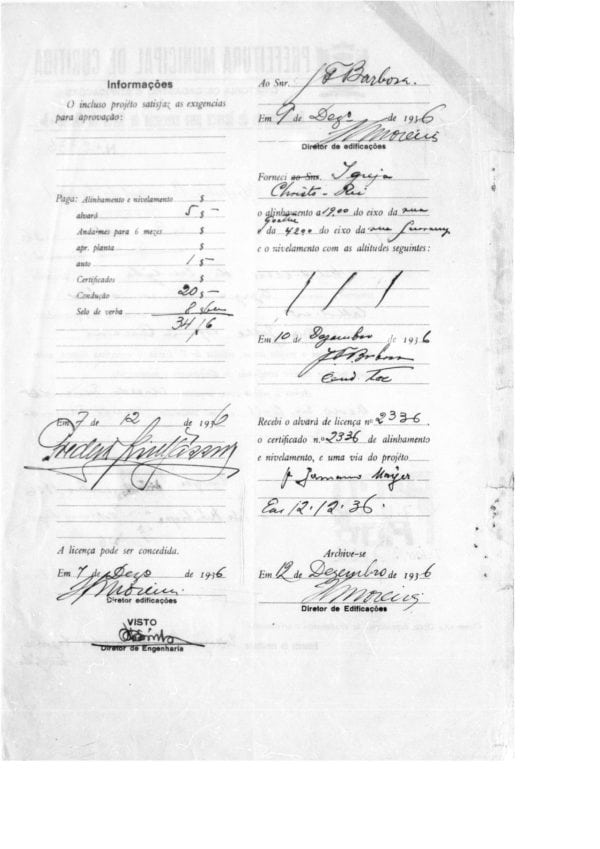 Informações
O incluso projéto satisfaz as exigencias
para aprovação:
Paga: Alinhamento e nivelamento $
alvará 5 $ —
Andaimes para 6 mezes $
apr. planta $
auto 1 $ —
Certificados $
Condução 20 $ —
Selo de verba 8 $
34
Em 7 de 12 de 1936
A licença pode ser concedida.
Em 7 de Dezo de 1936
H Moreira
Diretor edificações
VISTO
Diretor de Engenharia
Ao Snr. J F Barbosa.
Em 9 de Dezo de 1936
H Moreira
Diretor de edificações
Forneci ao Snr. Igreja
Christo-Rei
o alinhamento a 19,00 do eixo da rua
Goethe
da 42 do eixo da rua
e o nivelamento com as altitudes seguintes:
/ / /
Em 10 de Dezembro de 1936
J F Barbosa
Recebi o alvará de licença nº 2336.
o certificado n.º 2336 de alinhamento
e nivelamento, e uma via do projéto
p Germano Mayer
Em 12.12.36.
Archive-se
Em 12 de Dezembro de 1936
H Moreira
Diretor de Edificações